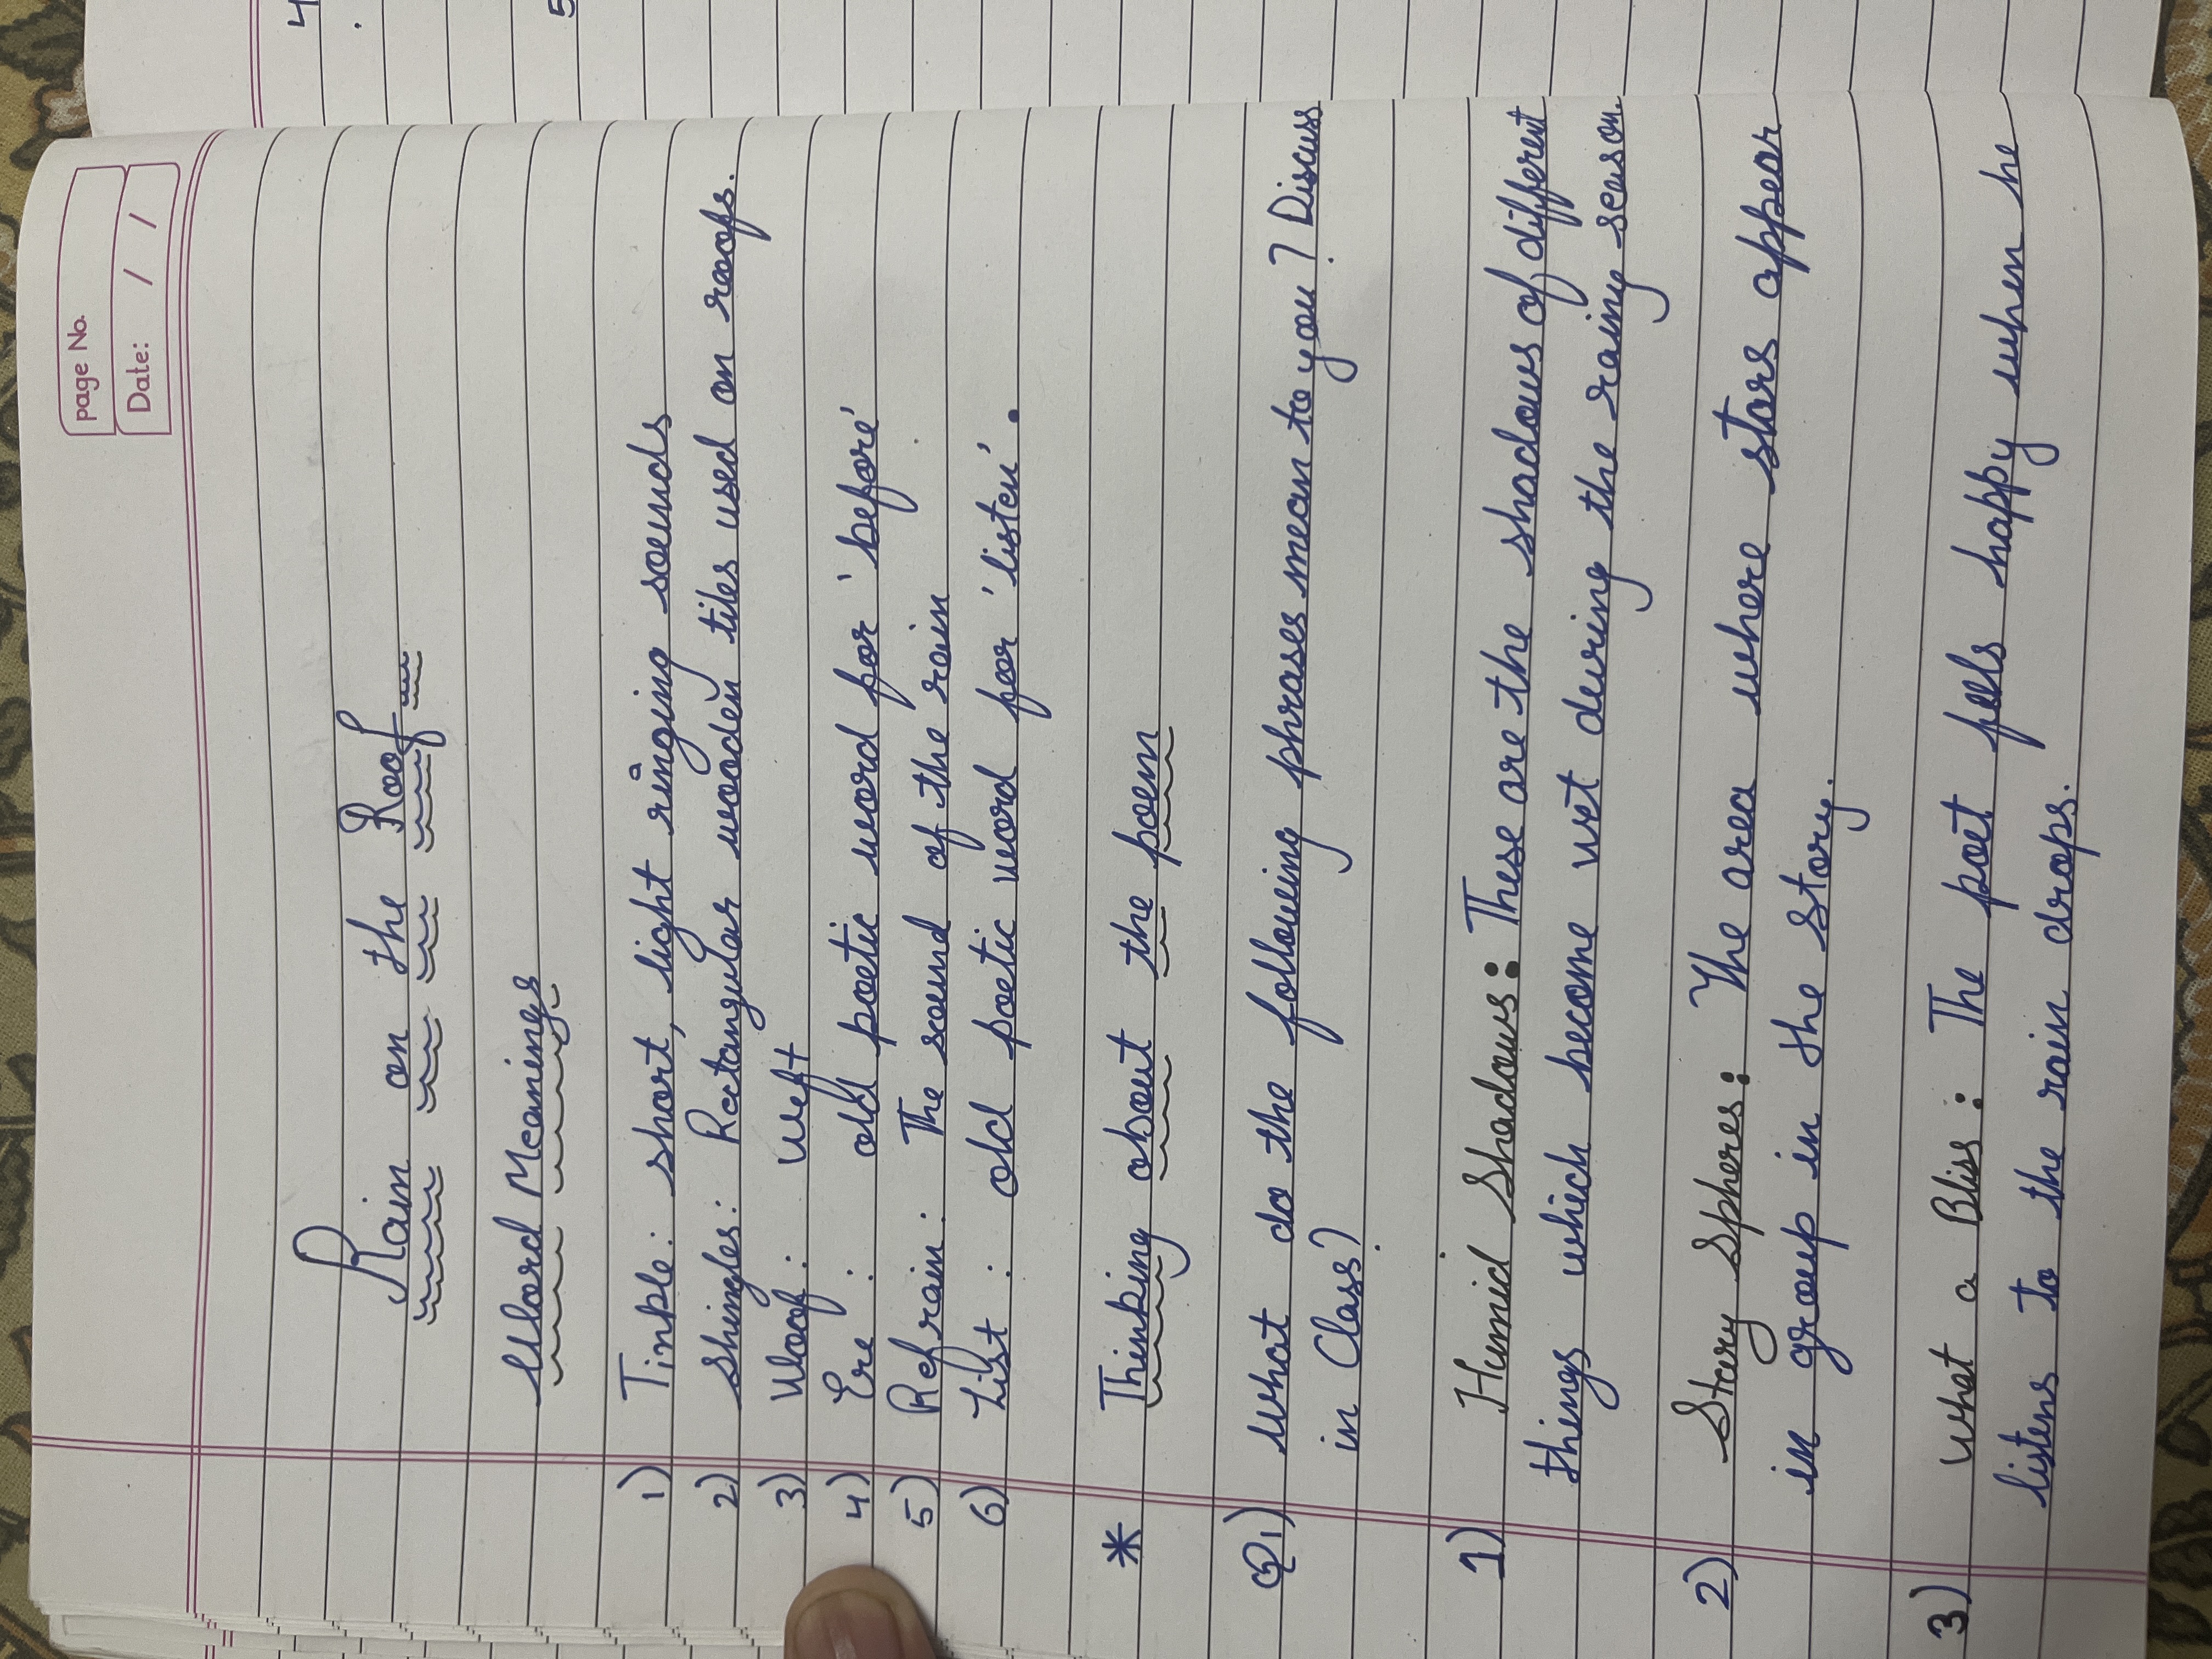 page No.
Date: / /
Rain on the Roof
Word Meanings
1) Tinple: short, light ringing sounds
2) Shingles: Rectangular wooden tiles used on roofs.
3) Woof: weft
4) Ere: old poetic word for 'before'
5) Refrain: The sound of the rain
6) List: old poetic word for 'listen'.
* Thinking about the poem
Q1) What do the following phrases mean to you? Discuss
in Class?
1) Humid Shadows: These are the shadows of different
things which become wet during the rainy season.
2) Stary Spheres: The area where stars appear
in group in the story.
3) What a Bliss: The poet feels happy when he
listens to the rain drops.
4
5